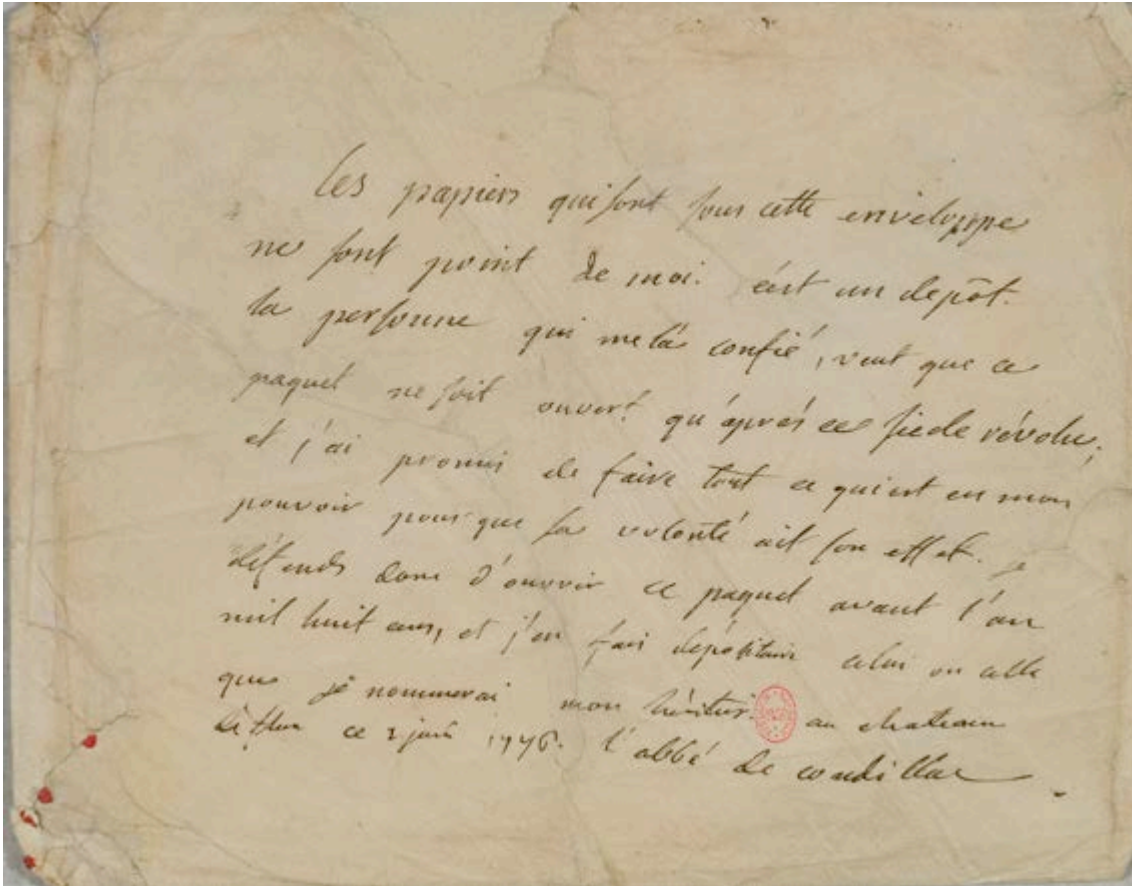 les papiers qui sont sous cette enveloppe
ne sont point de moi. c'est un depôt.
la personne qui me la confié, veut que ce
paquet ne soit ouvert qu'aprés ce siecle révolu,
et j'ai promis de faire tout ce qui est en mon
pouvoir pour que sa volonté ait son effet. je
défends donc d'ouvrir ce paquet avant l'an
mil huit cens, et j'en fais dépositaire celui ou celle
que je nommerai mon héritier. au chateau
ce 2 juin 1776. l'abbé de condillac